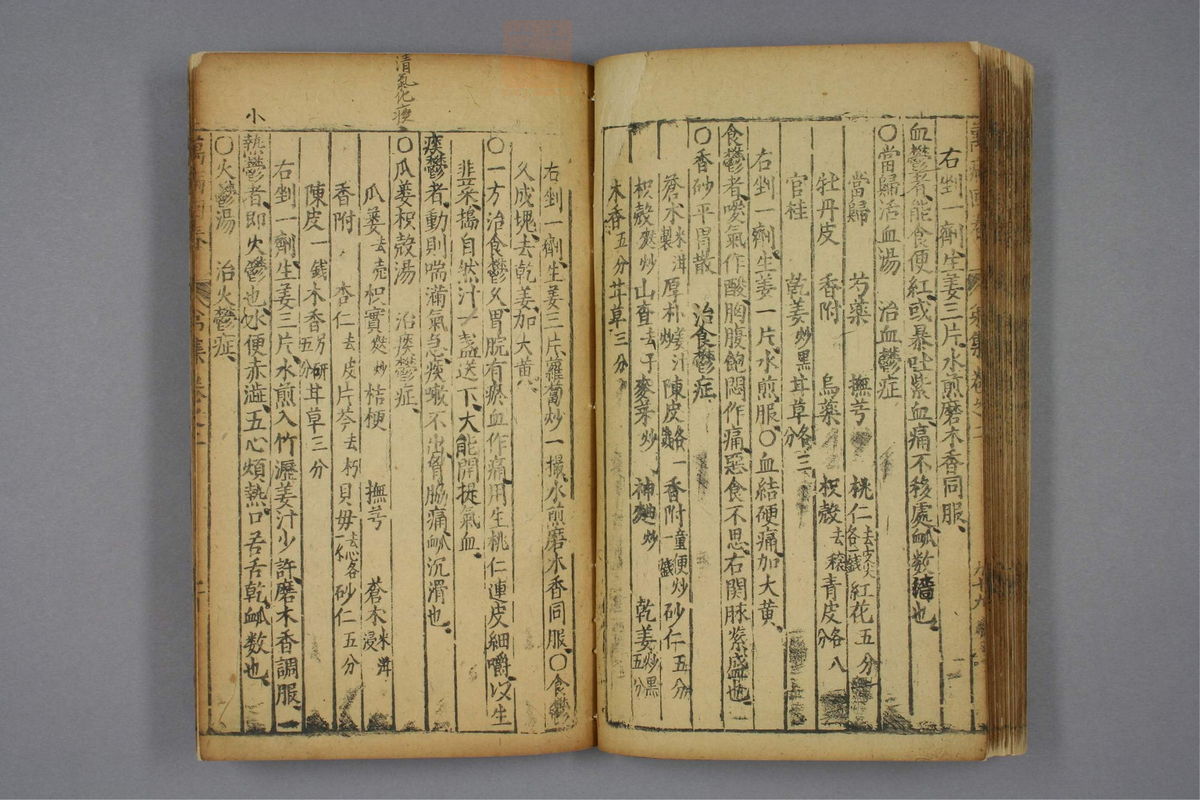 右剉一劑生姜三片水煎磨木香同服
血鬱者能食便紅或暴吐紫血痛不移處脉数濇也
〇當歸活血湯 治血鬱症
當歸 芍藥 撫芎 桃仁去皮尖各一錢 紅花五分
牡丹皮 香附 烏藥 枳殼去穰 青皮各八分
官桂 乾姜炒黑 甘草各三分
右剉一劑生姜一片水煎服〇血結硬痛加大黄
食鬱者噯氣作酸胸腹飽悶作痛惡食不思右関脉紧盛也
〇香砂平胃散 治食鬱症
蒼术米泔製 厚朴姜汁炒 陳皮各一錢 香附一錢童便炒 砂仁五分
枳殼麩炒 山查去子 麥芽炒 神麯炒 乾姜炒黑五分
木香五分 甘草三分
右剉一劑生姜三片蘿蔔炒一撮水煎磨木香同服〇食鬱
久成塊去乾姜加大黄
〇一方治食鬱久胃脘有瘀血作痛用生桃仁連皮細嚼以生
韭菜搗自然汁一盞送下大能開提氣血
痰鬱者動則喘滿氣急痰嗽不出胷脇痛脉沉滑也
清氣化痰
〇瓜蔞枳殼湯 治痰鬱症
瓜蔞去壳 枳實麩炒 桔梗 撫芎 蒼术米泔浸
香附 杏仁去皮 片芩去朽 貝母去心各一錢 砂仁五分
陳皮一錢 木香五分另研 甘草三分
右剉一劑生姜三片水煎入竹瀝姜汁少許磨木香調服
小
熱鬱者即火鬱也氷便赤澁五心煩熱口苦舌乾脉数也
〇火鬱湯 治火鬱症
萬病回春